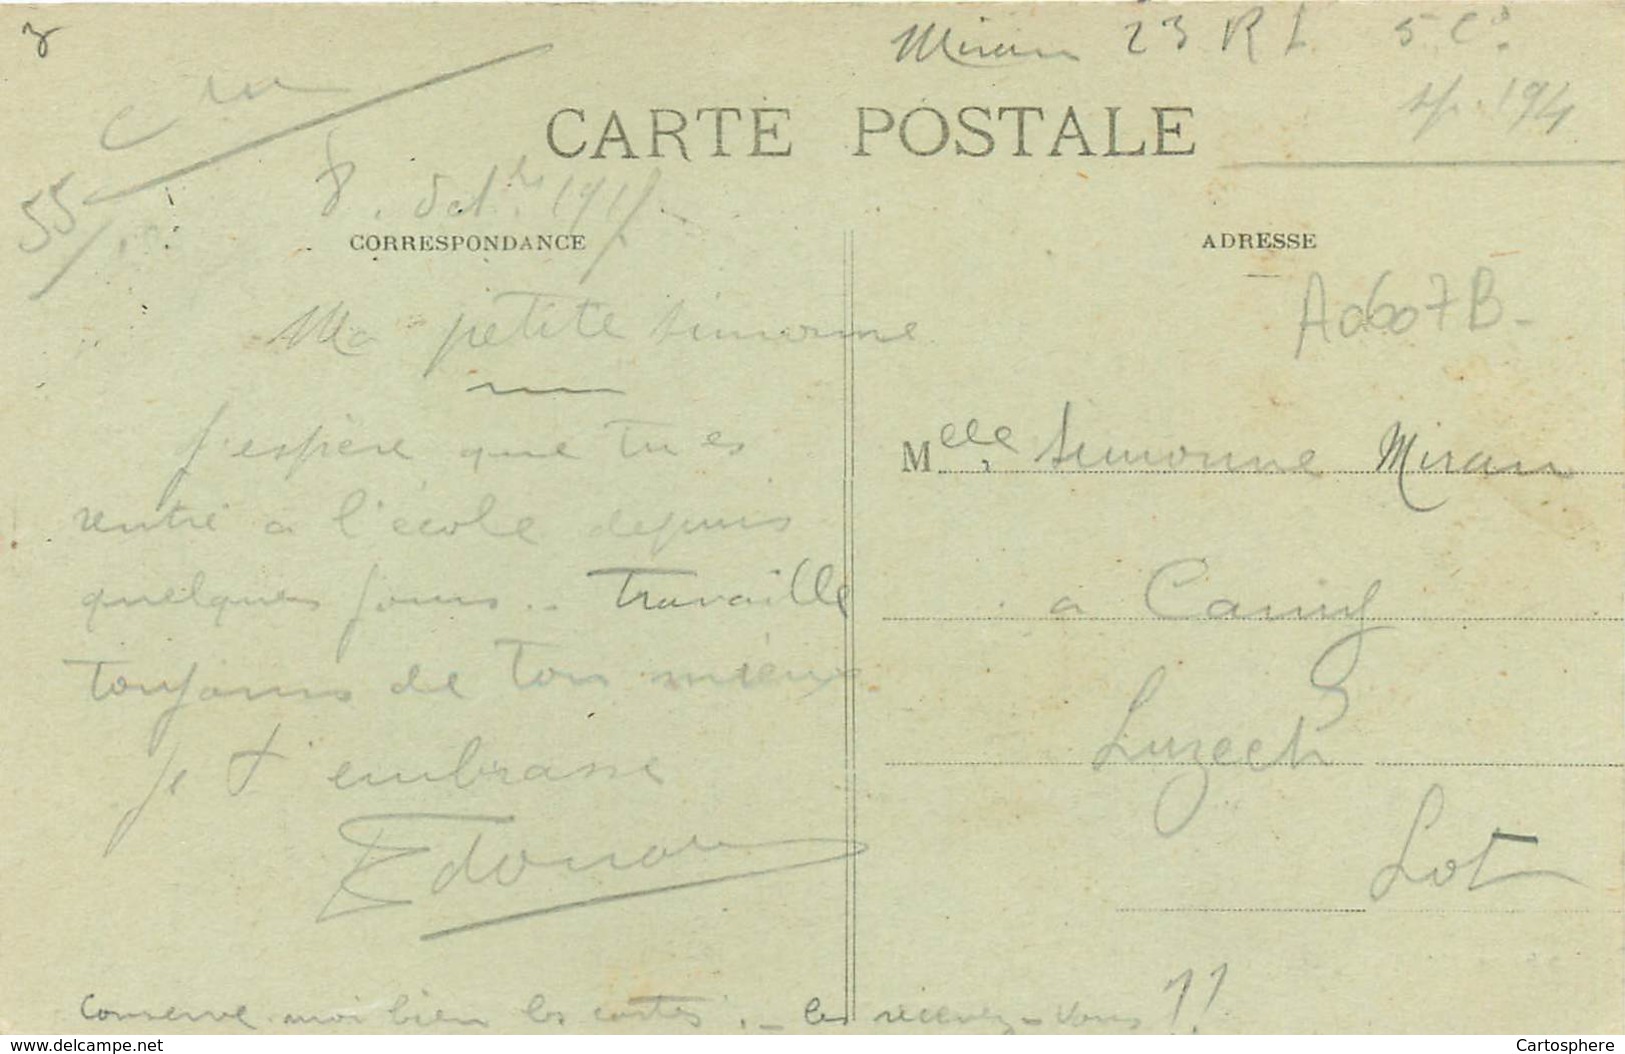 Miran 23 R I 5 Cie
sp. 194
CARTE POSTALE
55
8 Octbre 1915
CORRESPONDANCE
Ma petite Simonne
J'espère que tu es
rentré à l'école depuis
quelques jours.. Travaille
toujours de ton mieux
Je t'embrasse
Edouard
Conserve moi bien les cartes. _ les recevez-vous ??
ADRESSE
A0607B-
Melle Simonne Miran
à Camy
Luzech
Lot
www.delcampe.net
Cartosphere